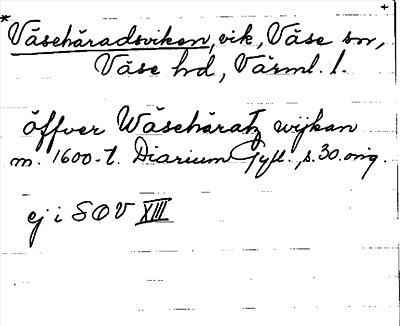 * Väsehäradsviken, vik, Väse sn, +
Väse hd, Värml. l.
öffver Wäsehäratz wijkan
m. 1600-t. Diarium Gyll., s. 30. orig.
ej i SOV XIII